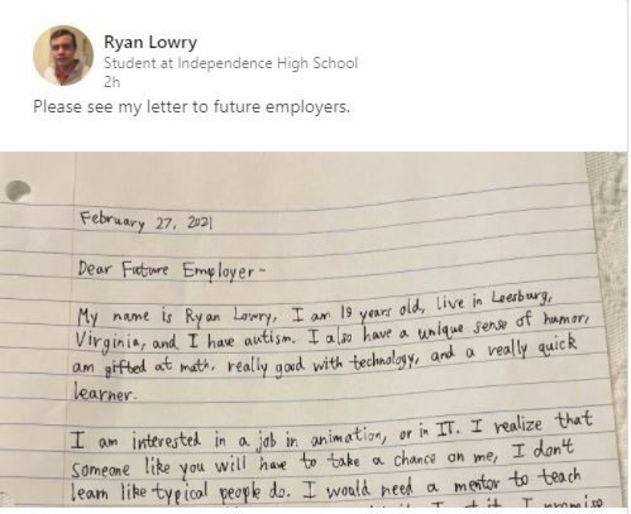 Ryan Lowry
Student at Independence High School
2h
Please see my letter to future employers.
February 27, 2021
Dear Future Employer-
My name is Ryan Lowry, I am 19 years old, live in Leesburg,
Virginia, and I have autism. I also have a unique sense of humor,
am gifted at math, really good with technology, and a really quick
learner.
I am interested in a job in animation, or in IT. I realize that
someone like you will have to take a chance on me, I don't
learn like typical people do. I would need a mentor to teach
I promise